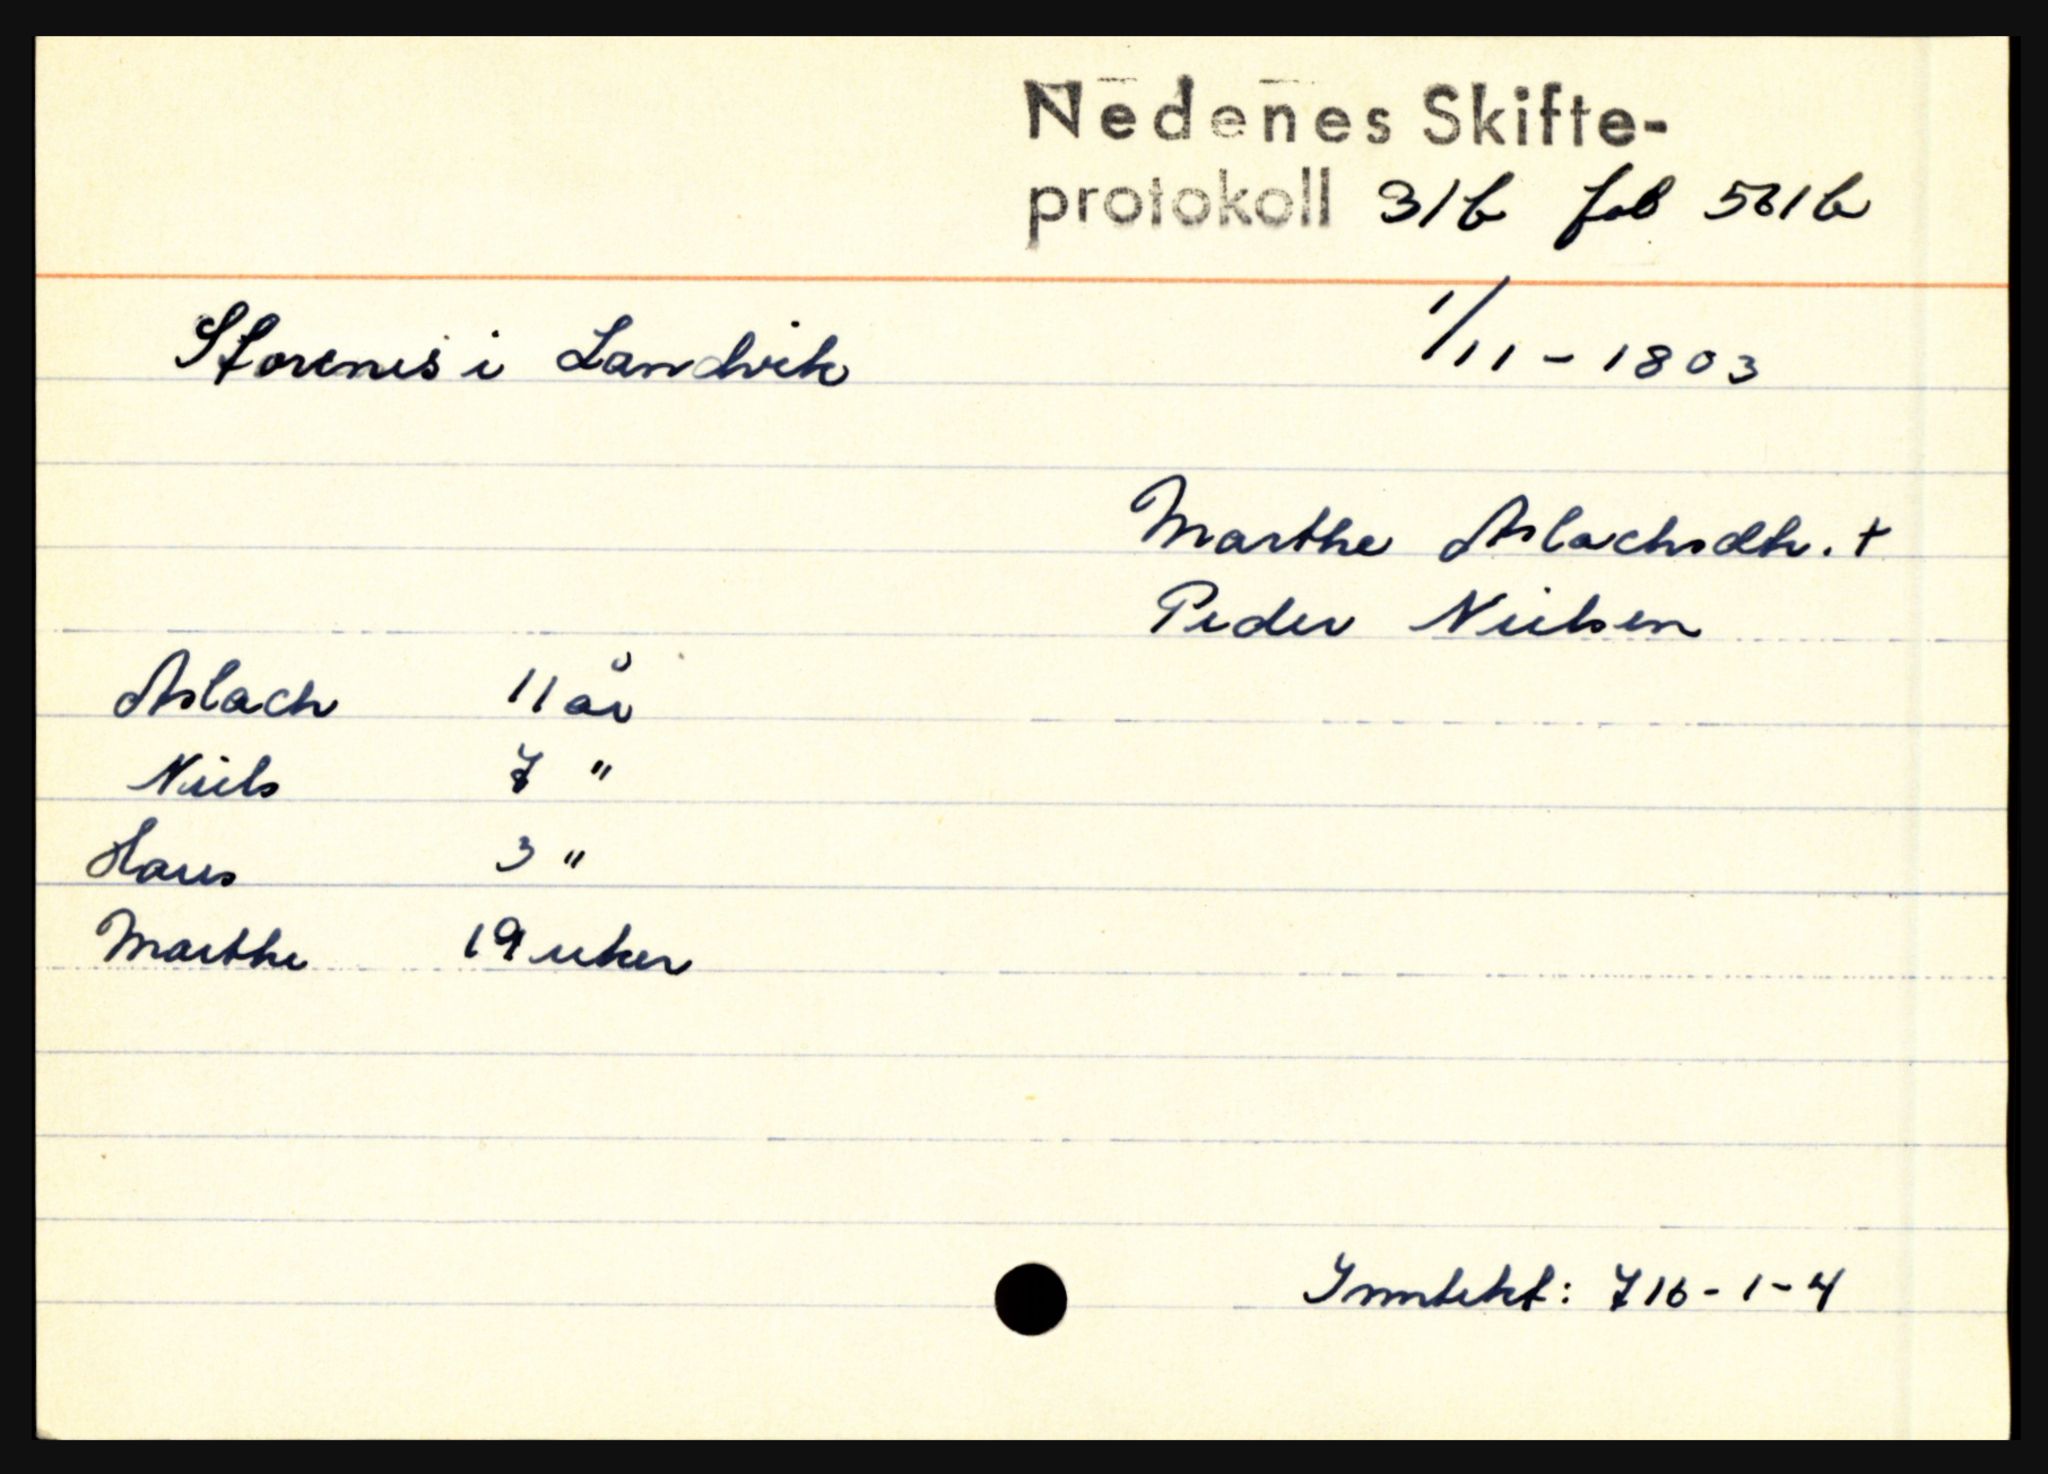 Nedenes Skifte-
protokoll 31b fol 561b
Storenes i Landvik 1/11-1803
Marthe Aslachsdtr. +
Peder Nielsen
Aslach 11 år
Niels 7 "
Hans 3 "
Marthe 19 uker
Inntekt: 716-1-4